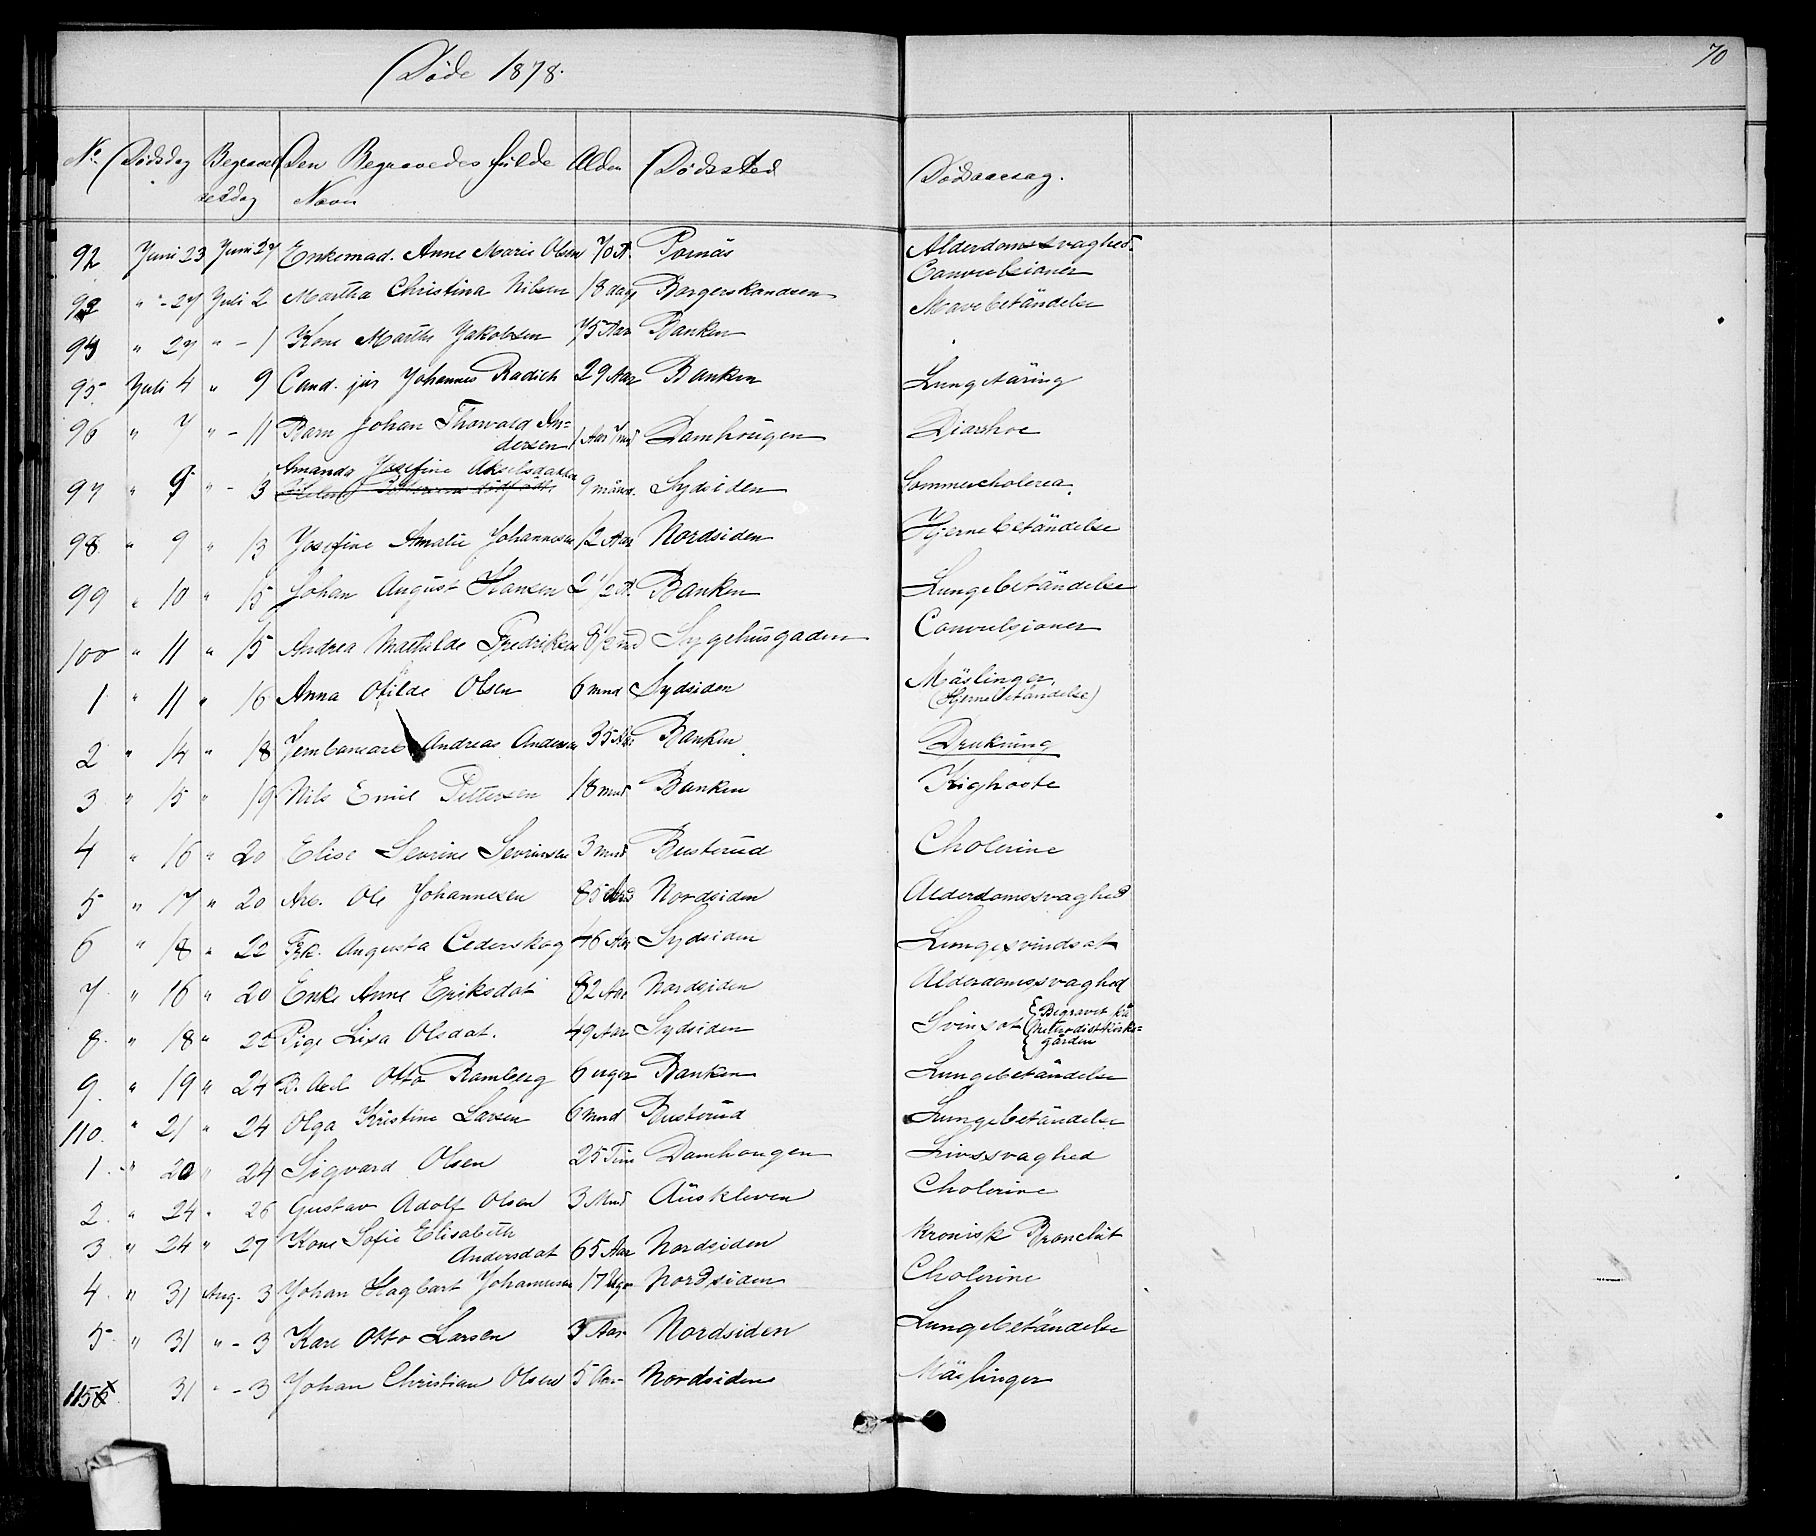 Døde 1878.
70
No. Dødsdag Begravelsesdag Den Begravedes fulde Navn Alder Dødssted Dødsaarsag.
92 Juni 23 Juni 27 Enkemad. Anne Marie Olsen 70 A. Pornäs Alderdomssvaghed
93 " - 27 Juli 2 Martha Christina Nilsen 18 dage Borgerskandsen Convulsioner
94 " 27 " - 1 Kone Marthe Jakobsen 75 Aar Banken Mavebetändelse
95 Juli 4 " 9 Cand. jur Johannes Radich 29 Aar Banken Lungetäring
96 " 7 " - 11 Barn Johan Thorvald An-
dersen 1 Aar 7 md Damhougen Diarrhoe
97 " 9 " - 3 Amanda Josefine Akselsdatter 9 mån. Sydsiden Sommercholera.
98 " 9 " 13 Josefine Amalie Johannesen 12 Aar Nordsiden Hjernebetändelse
99 " 10 " 15 Johan August Hansen 2 1/2 A. Banken Lungebetändelse
100 " 11 " 15 Andrea Mathilde Fredriksen 8 1/2 md Sygehusgaden Convulsioner
1 " 11 " 16 Anna Otilde Olsen 6 mnd Sydsiden Mäslinger
(Hjernebetändelse)
2 " 14 " 18 Jernbanearb Andreas Andersen 35 Aar Banken Drukning
3 " 15 " 19 Nils Emil Pettersen 18 mnd Banken Kighoste
4 " 16 " 20 Elise Sevrine Sevrinsen 3 mnd Busterud Cholerine
5 " 17 " 20 Arb. Ole Johannesen 85 Aar Nordsiden Alderdomssvaghed
6 " 18 " 22 Frk. Augusta Cederskog 46 Aar Sydsiden Lungesvindsot
7 " 16 " 20 Enke Anne Eriksdat 82 Aar Nordsiden Alderdomssvaghed
8. " 18 " 22 Pige Lisa Olsdat. 49 Aar Sydsiden Svinsot { Begravet på
Metodistkirke-
gården
9. " 19 " 24 B. Axel Otto Ramberg 6 uger Banken Lungebetändelse
110. " 21 " 24 Olga Kristine Larsen 6 mnd Busterud Lungebetändelse
1. " 20 " 24 Sigvard Olsen 25 Tim Damhougen Livssvaghed
2. " 24 " 26 Gustav Adolf Olsen 3 Mnd Auskleven Cholerine
3 " 24 " 27 Kone Sofie Elisabeth
Andersdat 65 Aar Nordsiden kronisk Bronchit
4. " 31 Aug. 3 Johan Hagbart Johannesen 17 Uger Nordsiden Cholerine
5 " 31 " - 3 Karl Otto Larsen 3 Aar Nordsiden Lungebetändelse
115 31 " - 3 Johan Christian Olsen 5 Aar Nordsiden Mäslinger